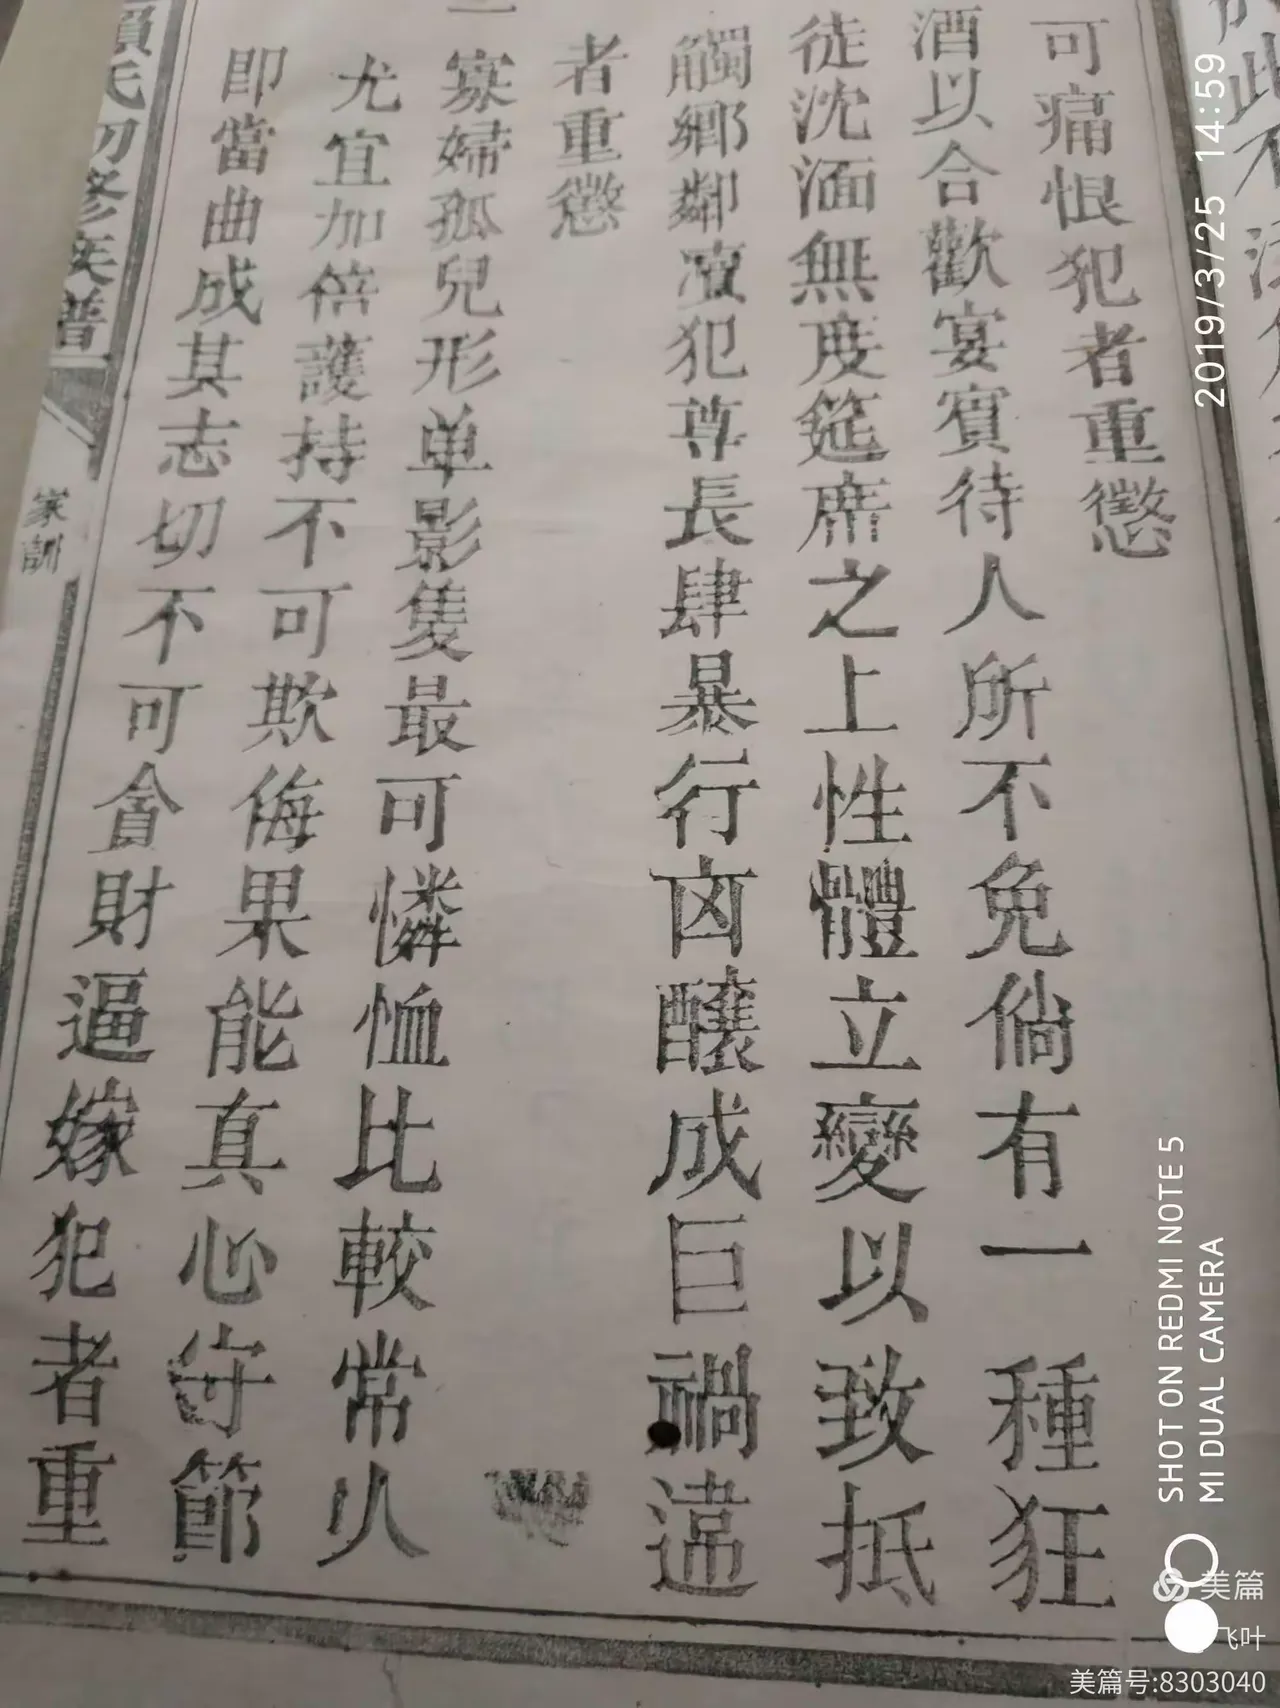 可痛恨犯者重懲
酒以合歡宴賓待人所不免倘有一種狂
徒沈湎無度筵席之上性體立變以致抵
觸鄉鄰凟犯尊長肆暴行凶釀成巨禍違
者重懲
一寡婦孤兒形单影隻最可憐恤比較常人
尤宜加倍護持不可欺侮果能真心守節
即當曲成其志切不可貪財逼嫁犯者重
賴氏初修族譜
家訓
2019/3/25 14:59
SHOT ON REDMI NOTE 5
MI DUAL CAMERA
美篇
飞叶
美篇号:8303040